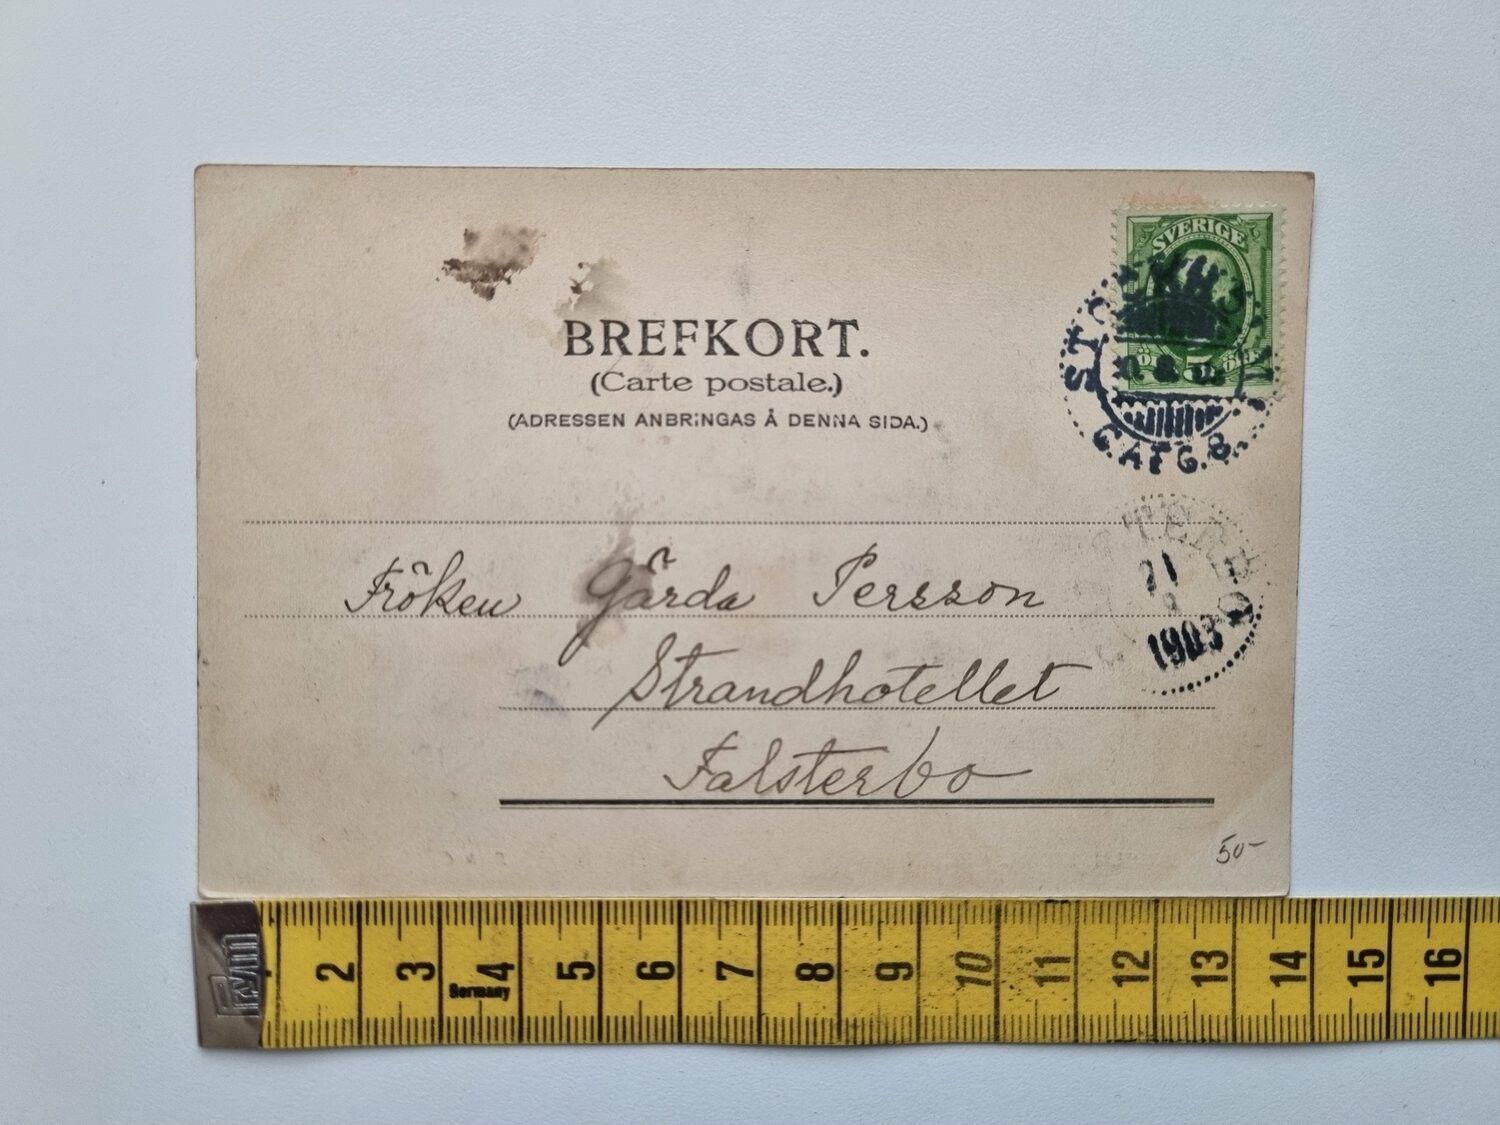 SVERIGE
5
BREFKORT.
(Carte postale.)
(ADRESSEN ANBRINGAS Å DENNA SIDA.)
C.AFG.8.
21
1903
Fröken Gärda Persson
Strandhotellet
Falsterbo
50-
Prym
2 3 4 5 6 7 8 9 10 11 12 13 14 15 16
Germany